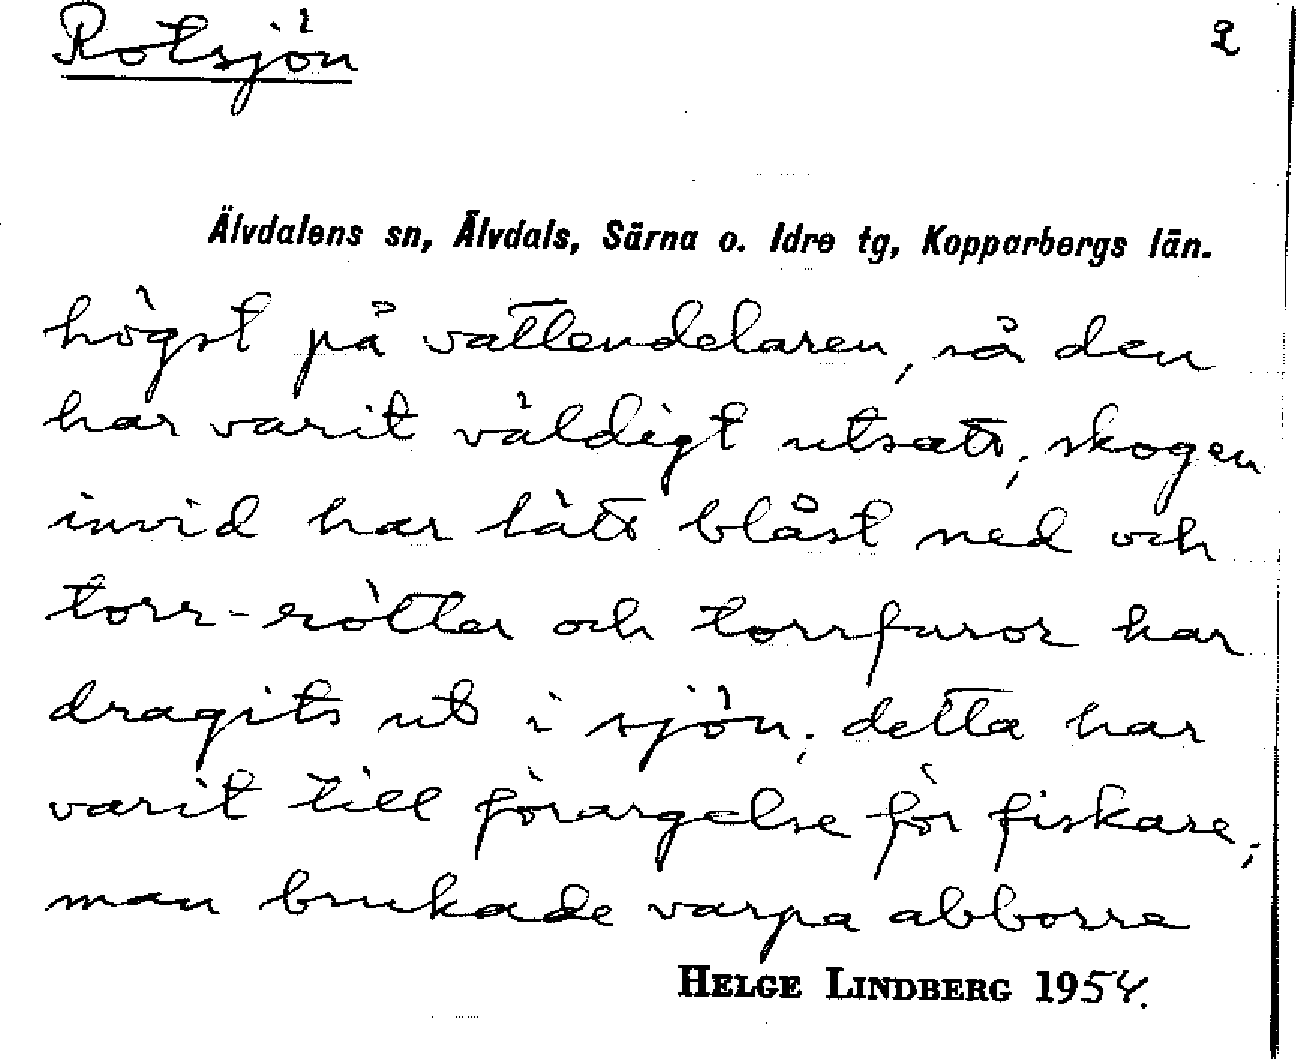 Rotsjön
2
Älvdalens sn, Älvdals, Särna o. Idre tg, Kopparbergs län.
högst på vattendelaren, så den
har varit väldigt utsatt; skogen
invid har lätt blåst ned och
torr-rötter och torrfuror har
dragits ut i sjön; detta har
varit till förargelse för fiskare;
man brukade varpa abborre
HELGE LINDBERG 1954.